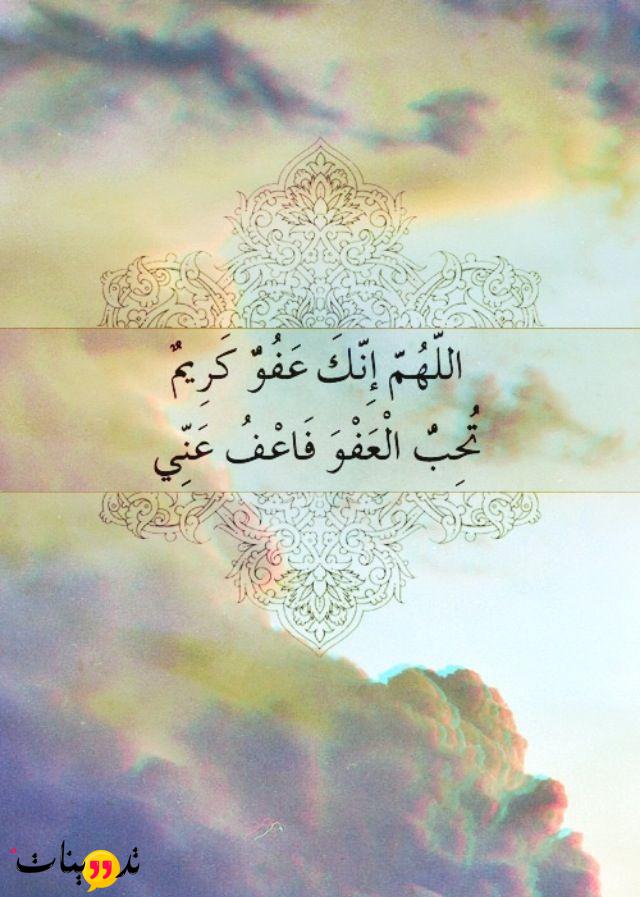 اللّهُمّ إِنّكَ عَفُوٌّ كَرِيمٌ
تُحِبٌ الْعَفْوَ فَاعْفُ عَنِّي
تدوينات